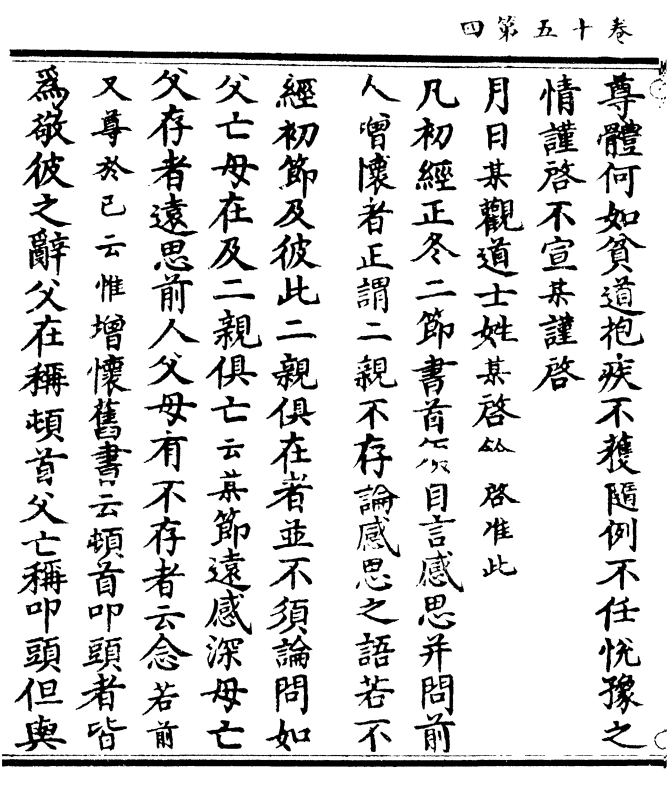 卷十五第四
尊體何如貧道抱疾不獲隨例不任悅豫之
情謹啓不宣某謹啓
月日某觀道士姓某啓 啓准此
凡初經正冬二節書首 自言感思并問前
人增懷者正謂二親不存論感思之語若不
經初節及彼此二親俱在者並不須論問如
父亡母在及二親俱亡云某節遠感深母亡
父存者遠思前人父母有不存者云念若前
又尊於己云惟增懷舊書云頓首叩頭者皆
爲敬彼之辭父在稱頓首父亡稱叩頭但與